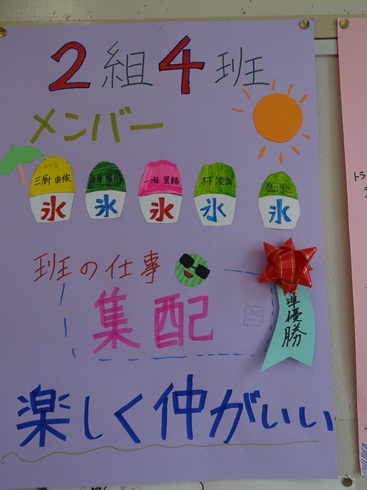 2組4班
メンバー
三厨 由依
氷 氷 氷 氷 氷
班の仕事
集配
準優勝
楽しく仲がいい